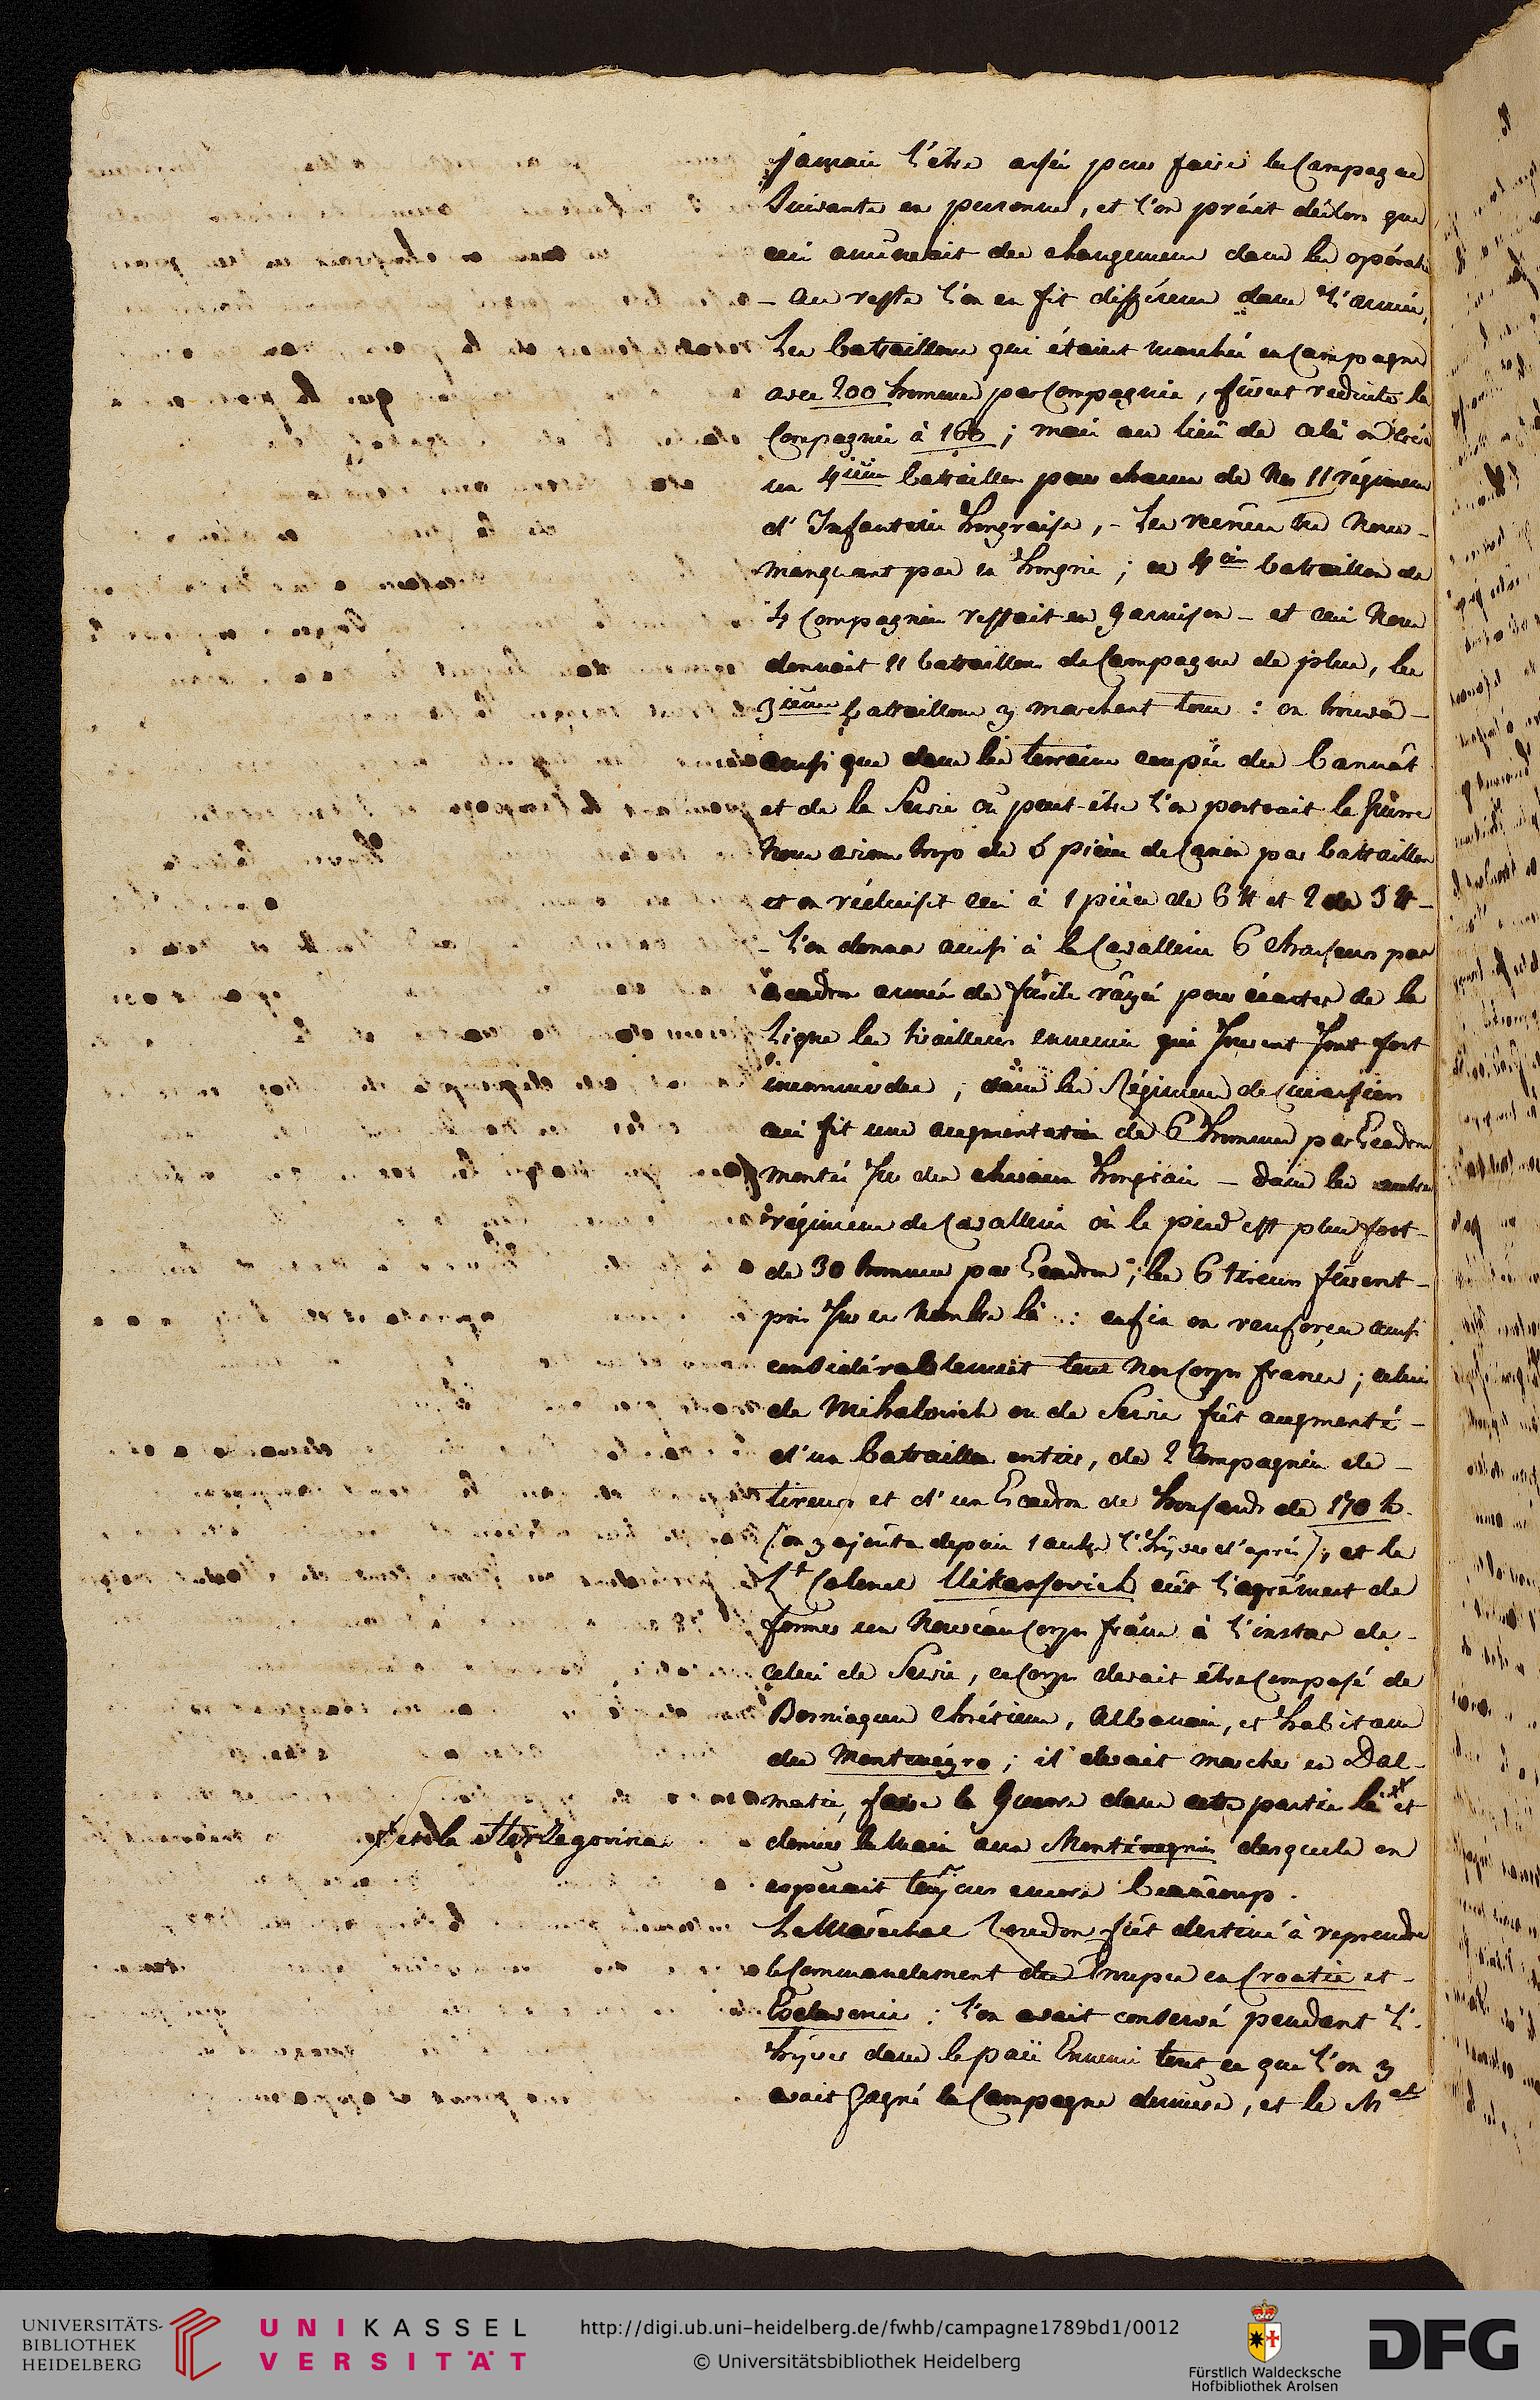 jamais l'être assés pour faire la Campagne
Suivante en personne, et l'on prévit déslors que
ceci amènerait des changemens dans les opérati
- au reste l'on en fit différens dans l'armée,
Les bataillons qui étaient marchés en Campagne
avec 200 hommes par Compagnie, fûrent reduits la
Compagnie à 160; mais au lieû de celà on créa
un 4ième bataillon pour chacun de Nos 11 régimens
d'Infanterie hongraise, - Les recrües ne Nous -
manquant pas en hongrie; ce 4ème bataillon de
4 Compagnies restait en garnison - et ceci Nous
donnait 11 bataillons de Campagne de plus, les
3ièmes bataillons y marchant tous : on trouva -
aussi que dans les terrains coupés du bannât
et de la Servie où peut-être l'on portrait la Guerre
Nous avions trop de 6 pièces de Canon par bataillon
et on réduisit ceci à 1 pièce de 6 ℔ et 2 de 3 ℔ -
- l'on donna aussi à la Cavallerie 6 Chasseurs par
Escadron armés de fusils rayés pour écarter de la
Ligne les tirailleurs ennemis qui souvent sont fort
incommodes; dans les Régimens de Cuirassiers
ceci fit une augmentation de 6 hommes par Escadron
montés sur des chevaux hongrais - dans les autres
régimens de Cavallerie où le pied est plus fort -
de 30 hommes par Escadron; les 6 tireurs fûrent -
pris sur ce Nombre là : enfin on renforça aussi
considérablement tous Nos Corps francs; celui
de Mihalovich ou de Servie fût augmenté -
d'un bataillon entier, de 2 Compagnies de -
tireurs et d'un Escadron de housards de 170 h.
(on y ajoûta depuis 1 autre l'hÿver d'après), et le
Lt Colonel Vukassovich eût l'agrément de
former un Nouveau Corps franc à l'instar de -
celui de Servie, ce Corps devait être Composé de
Bosniaques chrétiens, Albanais, et habitans
du Montenégro; il devait marcher en Dal-
matie, faire la Guerre dans cette partie là et
x et de la Herzegovina
donner la Main aux Monténégrins desquels on
espérait toujours encore beaucoup.
Le Maréchal Loudon fût destiné à reprendre
le Commandement des Troupes en Croatie et -
Esclavonie : l'on avait conservé pendant l'-
hÿver dans le païs Ennemi tout ce que l'on y
avait gagné la Campagne dernière, et le Mal
UNIVERSITÄTS-
BIBLIOTHEK
HEIDELBERG
UNIKASSEL
VERSITÄT
http://digi.ub.uni-heidelberg.de/fwhb/campagne1789bd1/0012
© Universitätsbibliothek Heidelberg
Fürstlich Waldecksche
Hofbibliothek Arolsen
DFG